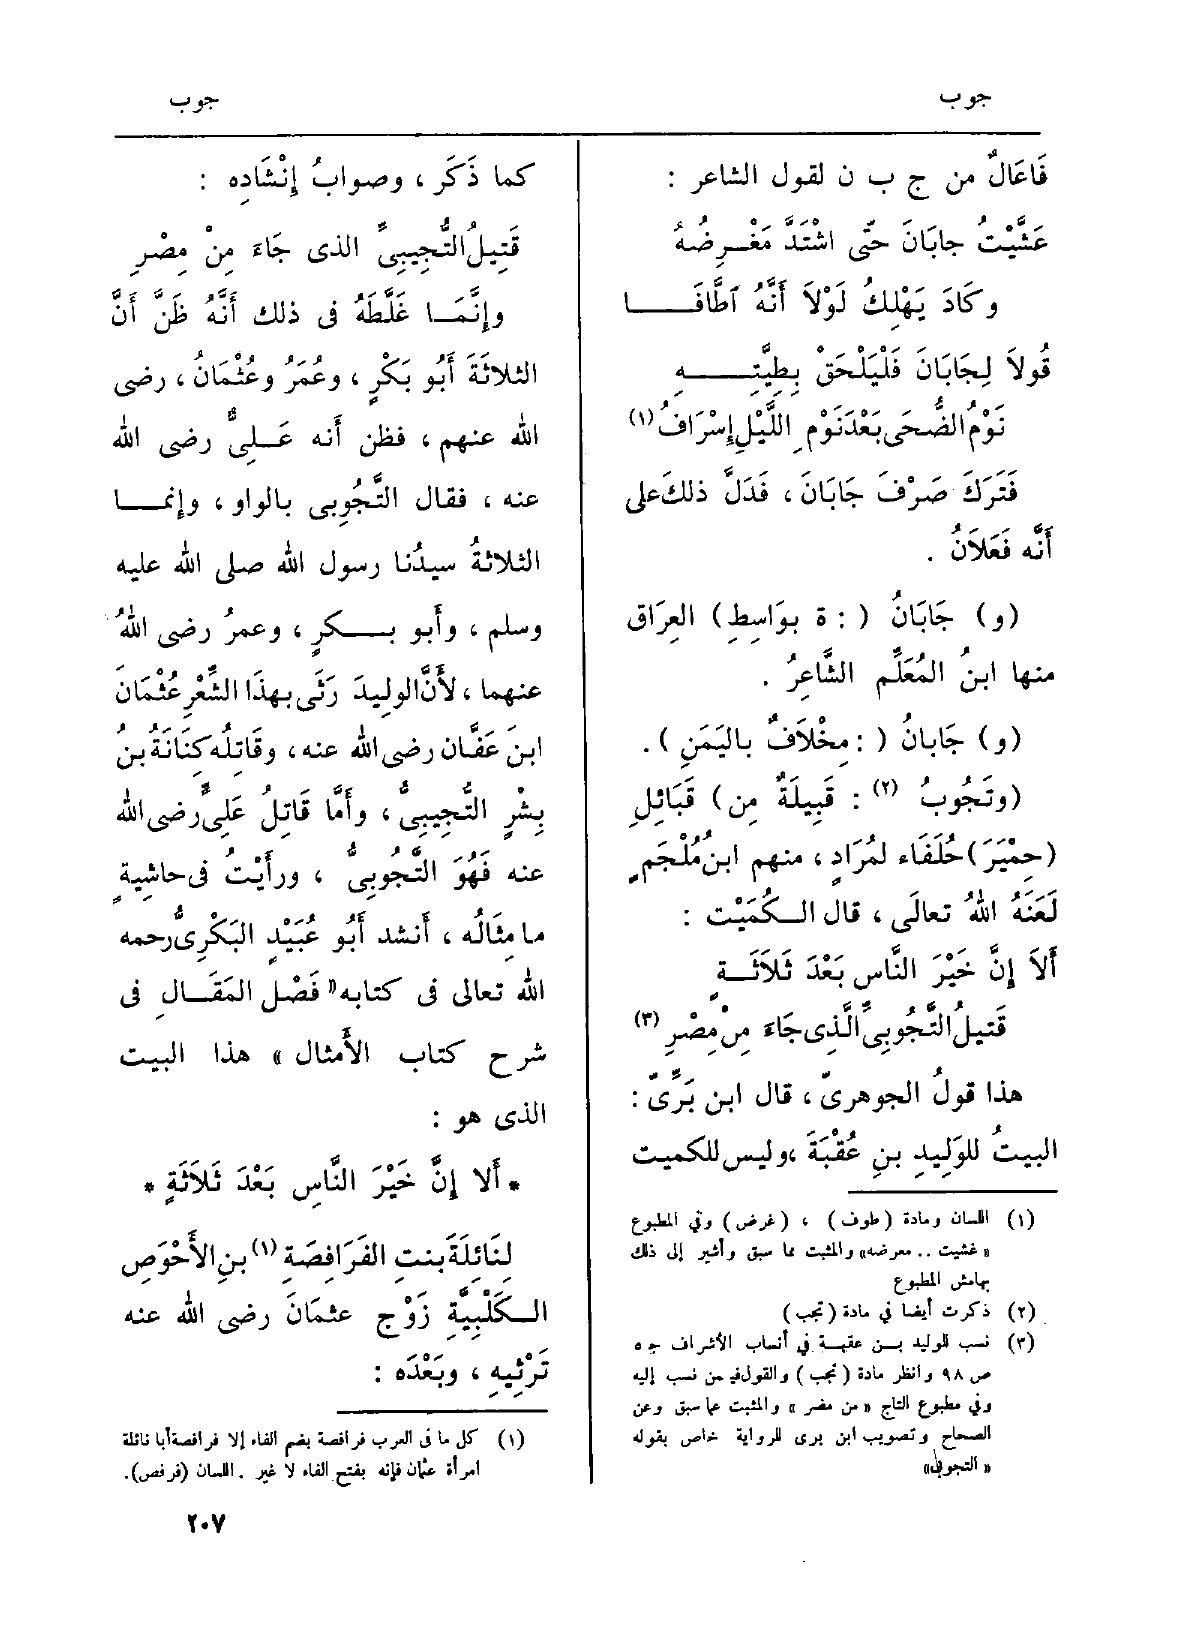 جوب
جوب
فَاعَالٌ من ج ب ن لقول الشاعر :
عَشَّيْتُ جابَانَ حتّى اشْتَدَّ مَغْرِضُهُ
وكَادَ يَهْلِكُ لَوْلاَ أَنَّهُ اطَّافَا
قُولاَ لِجَابَانَ فَلْيَلْحَقْ بِطِيَّتِهِ
نَوْمُ الضُّحَى بَعْدَ نَوْمِ اللَّيْلِ إسْرَافُ (١)
فَتَرَكَ صَرْفَ جَابَانَ ، فَدَلَّ ذلك على
أَنَّه فَعَلاَنُ .
(و) جَابَانُ ( : ة بوَاسِطِ) العِرَاق
منها ابنُ المُعَلِّمِ الشَّاعِرُ .
(و) جَابانُ ( : مِخْلاَفٌ باليَمَنِ ) .
(وتَجُوبُ (٢) : قَبِيلَةٌ مِن) قَبَائِلِ
(حِمْيَرَ) حُلَفَاء لمُرَادٍ ، منهم ابن مُلْجَمٍ
لَعَنَهُ اللهُ تعالَى ، قال الكُمَيْت :
أَلاَ إنَّ خَيْرَ النَّاسِ بَعْدَ ثَلاَثَةٍ
قَتيلُ التَّجُوبِيِّ الَّذِى جَاءَ مِنْ مِصْرِ (٣)
هذا قولُ الجوهرىّ ، قال ابن بَرِّىّ :
البيتُ للوَلِيدِ بنِ عُقْبَةَ ، وليس للكميت
(١) اللسان ومادة (طوف) ، (غرض) وفي المطبوع
« غشيت .. معرضه» والمثبت مما سبق وأشير إلى ذلك
بهامش المطبوع
(٢) ذكرت أيضا في مادة (تجب)
(٣) نسب للوليد بن عقبة في أنساب الأشراف جـ ٥
ص ٩٨ وانظر مادة (تجب) والقول فيمن نسب إليه
وفي مطبوع التاج « من مضر » والمثبت مما سبق وعن
الصحاح وتصويب ابن برى للرواية خاص بقوله
« التجوبى»
كما ذَكَر ، وصوابُ إنْشَادِه :
قَتِيلُ التُّجِيبِىِّ الذى جَاءَ مِنْ مِصْرِ
وإنَّمَا غَلَّطَهُ فى ذلك أَنَّهُ ظَنَّ أَنَّ
الثلاثَةَ أَبُو بَكْرٍ ، وعُمَرُ وعُثْمَانُ ، رضى
الله عنهم ، فظن أنه عَلِىٌّ رضى الله
عنه ، فقال التَّجُوبِى بالواو ، وإنما
الثلاثةُ سيدُنا رسول الله صلى الله عليه
وسلم ، وأَبو بكرٍ ، وعمرُ رضى اللهُ
عنهما ، لأَنَّ الوليدَ رَثَى بهذا الشِّعْرِ عُثْمَانَ
ابنَ عَفَّان رضى الله عنه ، وقَاتِلُه كِنَانَةُ بنُ
بِشْرٍ التُّجِيبِىُّ ، وأَمَّا قَاتِلُ عَلِىٍّ رضى الله
عنه فَهُوَ التَّجُوبِىُّ ، ورأَيْتُ فى حاشيةٍ
ما مِثَالُه ، أنشد أَبُو عُبَيْدٍ البَكْرِىُّ رحمه
الله تعالى فى كتابه « فَصْل المَقَالِ فى
شرح كتاب الأَمثال » هذا البيت
الذى هو :
* أَلا إنَّ خَيْرَ النَّاسِ بَعْدَ ثَلاَثَةٍ *
لِنَائِلَةَ بنتِ الفَرَافِصَةِ (١) بنِ الأَحْوَصِ
الكَلْبِيَّةِ زَوْجِ عثمَانَ رضى الله عنه
تَرْثِيهِ ، وبَعْدَه :
(١) كل ما فى العرب فرافصة بضم الفاء إلا فرافصة أبا نائلة
امرأة عثمان فإنه بفتح الفاء لا غير . اللسان (فرفص).
٢٠٧